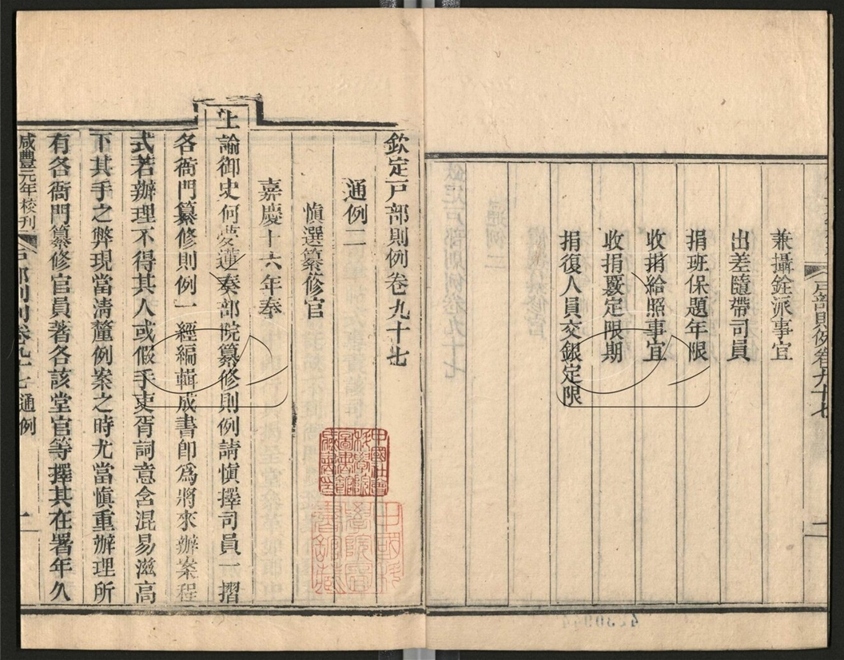 戶部則例卷九十七
二
兼攝銓派事宜
出差隨帶司員
捐班保題年限
收捐給照事宜
收捐覈定限期
捐復人員交銀定限
欽定戶部則例卷九十七
通例二
慎選纂修官
嘉慶十六年奉
上諭御史何夢蓮奏部院纂修則例請慎擇司員一摺
各衙門纂修則例一經編輯成書卽為將來辦案程
式若辦理不得其人或假手吏胥詞意含混易滋高
下其手之弊現當清釐例案之時尤當慎重辦理所
有各衙門纂修官員著各該堂官等擇其在署年久
咸豐元年校刊
戶部則例卷九十七 通例